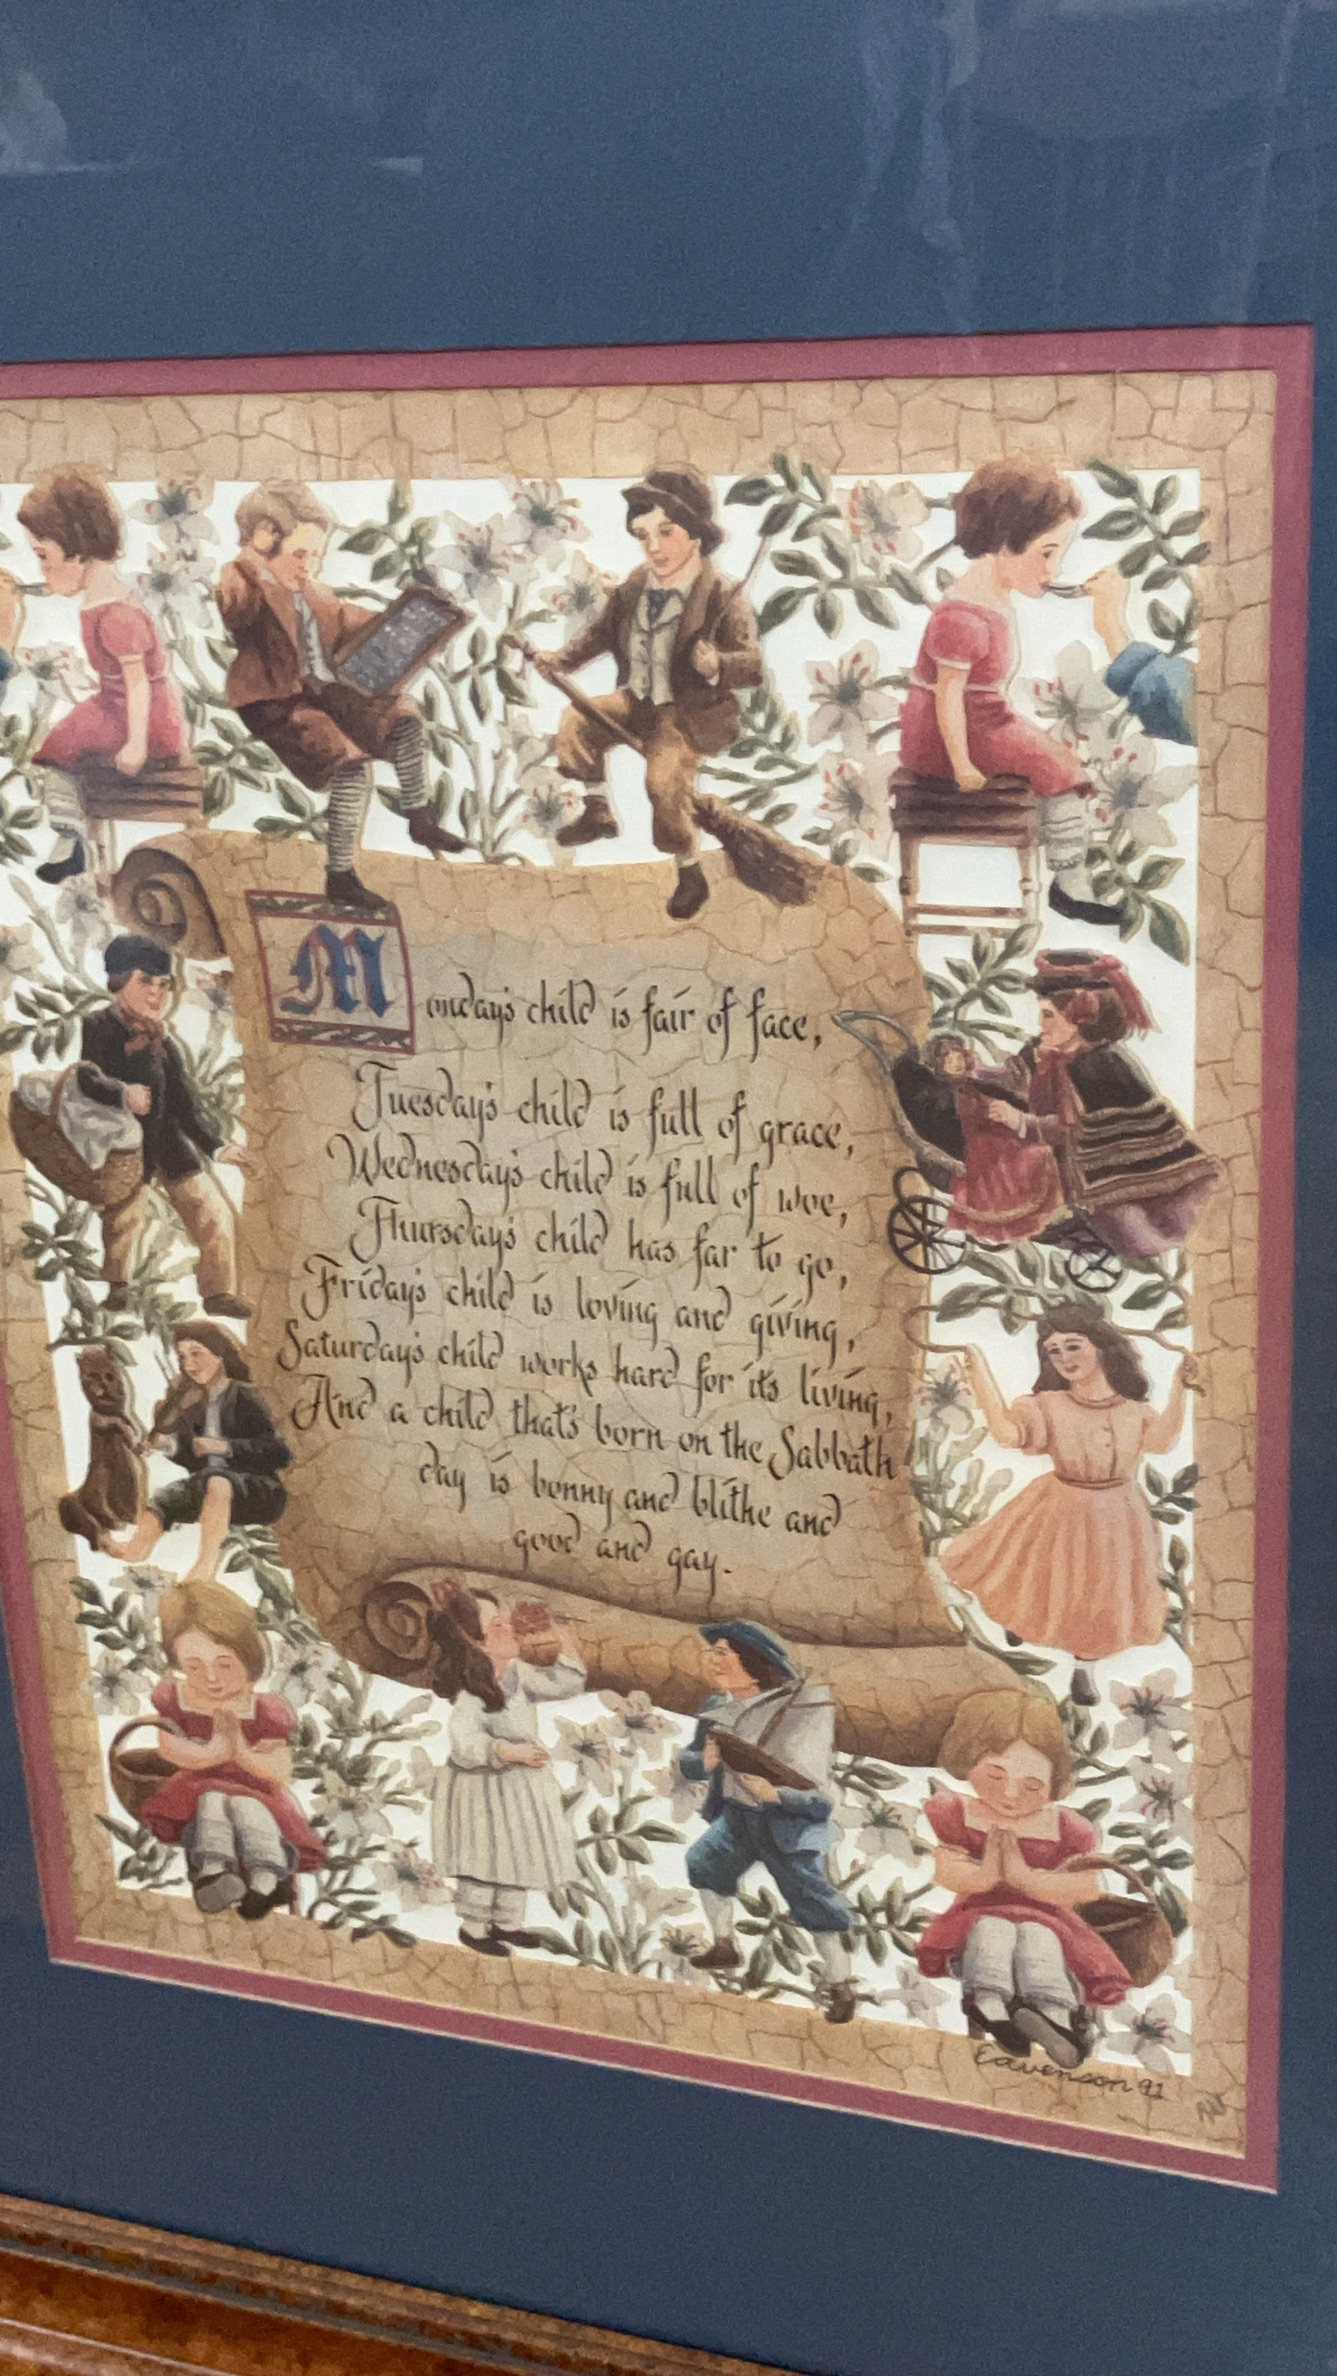 Monday's child is fair of face,
Tuesday's child is full of grace,
Wednesday's child is full of woe,
Thursday's child has far to go,
Friday's child is loving and giving,
Saturday's child works hard for it's living,
And a child that's born on the Sabbath
day is bonny and blithe and
good and gay.
Eavenson 91